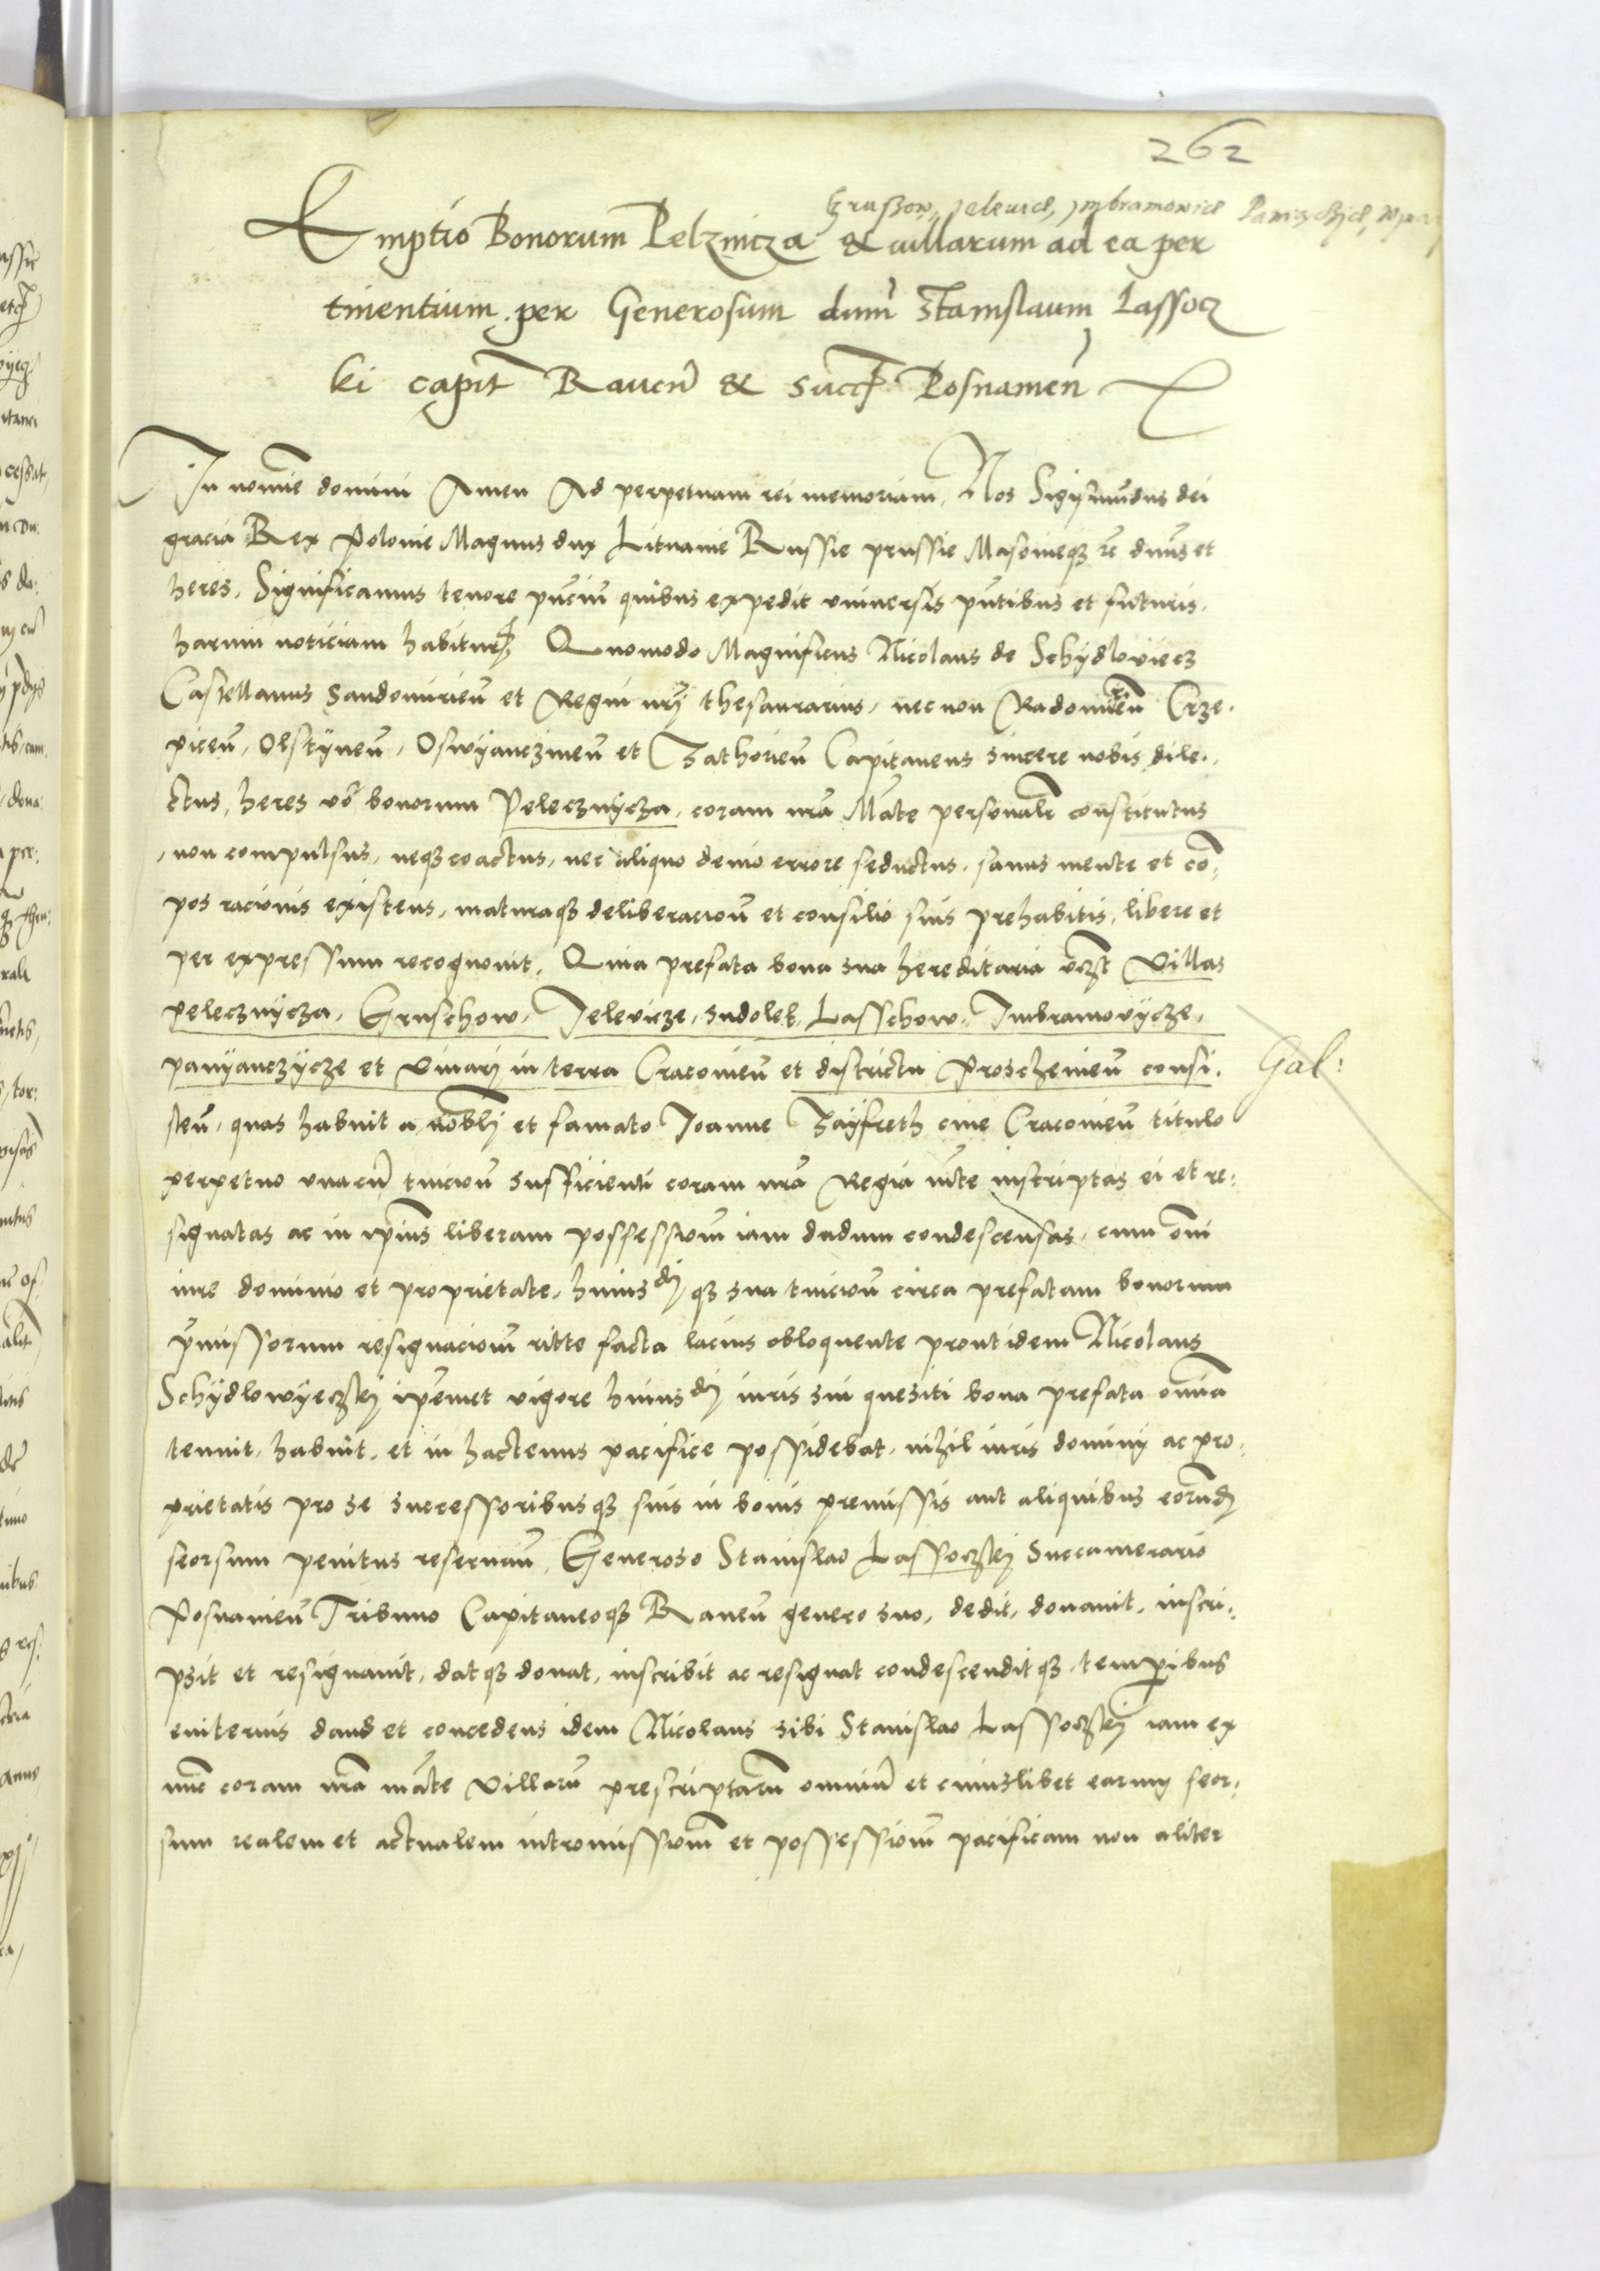 262
Grussow, Jelevicz, Jmbramovicz
Emptio Bonorum Pelznicza & uillarum ad ea per
tinentium per Generosum dnm Stanislaum Lassocz
ki capit Raven & succ Posnanien
In nomine domini Amen Ad perpetuam rei memoriam, Nos Sigismundus dei
gracia Rex Polonie Magnus dux Lituanie Russie prussie Masovieq3 rc dnus et
heres, Significamus tenore pncium quibus expedit universis pntibus et futuris,
harum noticiam habitur Quomodo Magnificus Nicolaus de Schydloviecz
Castellanus Sandomirien et Regni nrj thesaurarius, necnon Radomien Crze,
picen, Olstynen, Oswyanczimen et Zathorien Capitaneus sincere nobis dile,
ctus, heres vo bonorum Pelecznycza, coram nra Mate personalr constitutus
, non compulsus, neq3 coactus, nec aliquo devio errore seductus, sanus mente et co,
pos racionis existens, maturaq3 deliberacion et consilio suis prehabitis, libere et
per expressum recognovit, Quia prefata bona sua hereditaria vczt Villas
pelecznycza, Gruschow, Jelevicze, Sudolek, Lasschow, Imbramovycze,
panyanczycze et Vinarj in terra Cracovien et districtu Proschovien consi,
Gal:
sten, quas habuit a nobli et famato Joanne Zayfreth cive Cracovien titulo
perpetuo unacu tuicion sufficienti coram nra Regia mte inscriptas ei et re,
signatas ac in ipius liberam possession iam dudum condescensas, cum oni
iure dominio et proprietate, huiusdj q3 sua tuicion circa prefatam bonorum
pmissorum resignacion ritte facta lacius obloquente prout idem Nicolaus
Schydlowyeczkj ipemet vigore huiusdj iuris sui quesiti bona prefata omnia
tenuit, habuit, et in hactenus pacifice possidebat, nihil iuris dominij ac pro,
prietatis pro se successoribusq3 suis in bonis premissis aut aliquibus eorundj
seorsum penitus reservan, Generoso Stanislao Lassoczkj Succamerario
Posnanien Tribuno Capitaneoq3 Raven genero suo, dedit, donavit, inscri,
psit et resignavit, datq3 donat, inscribit ac resignat condescenditq3 temporibus
eviternis dand et concedens idem Nicolaus sibi Stanislao Lassoczkj iam ex
nuc coram nra mate Villaru prescriptaru omniu et cuiuslibet earum seor,
sum realem et actualem intromission et possession pacificam non aliter